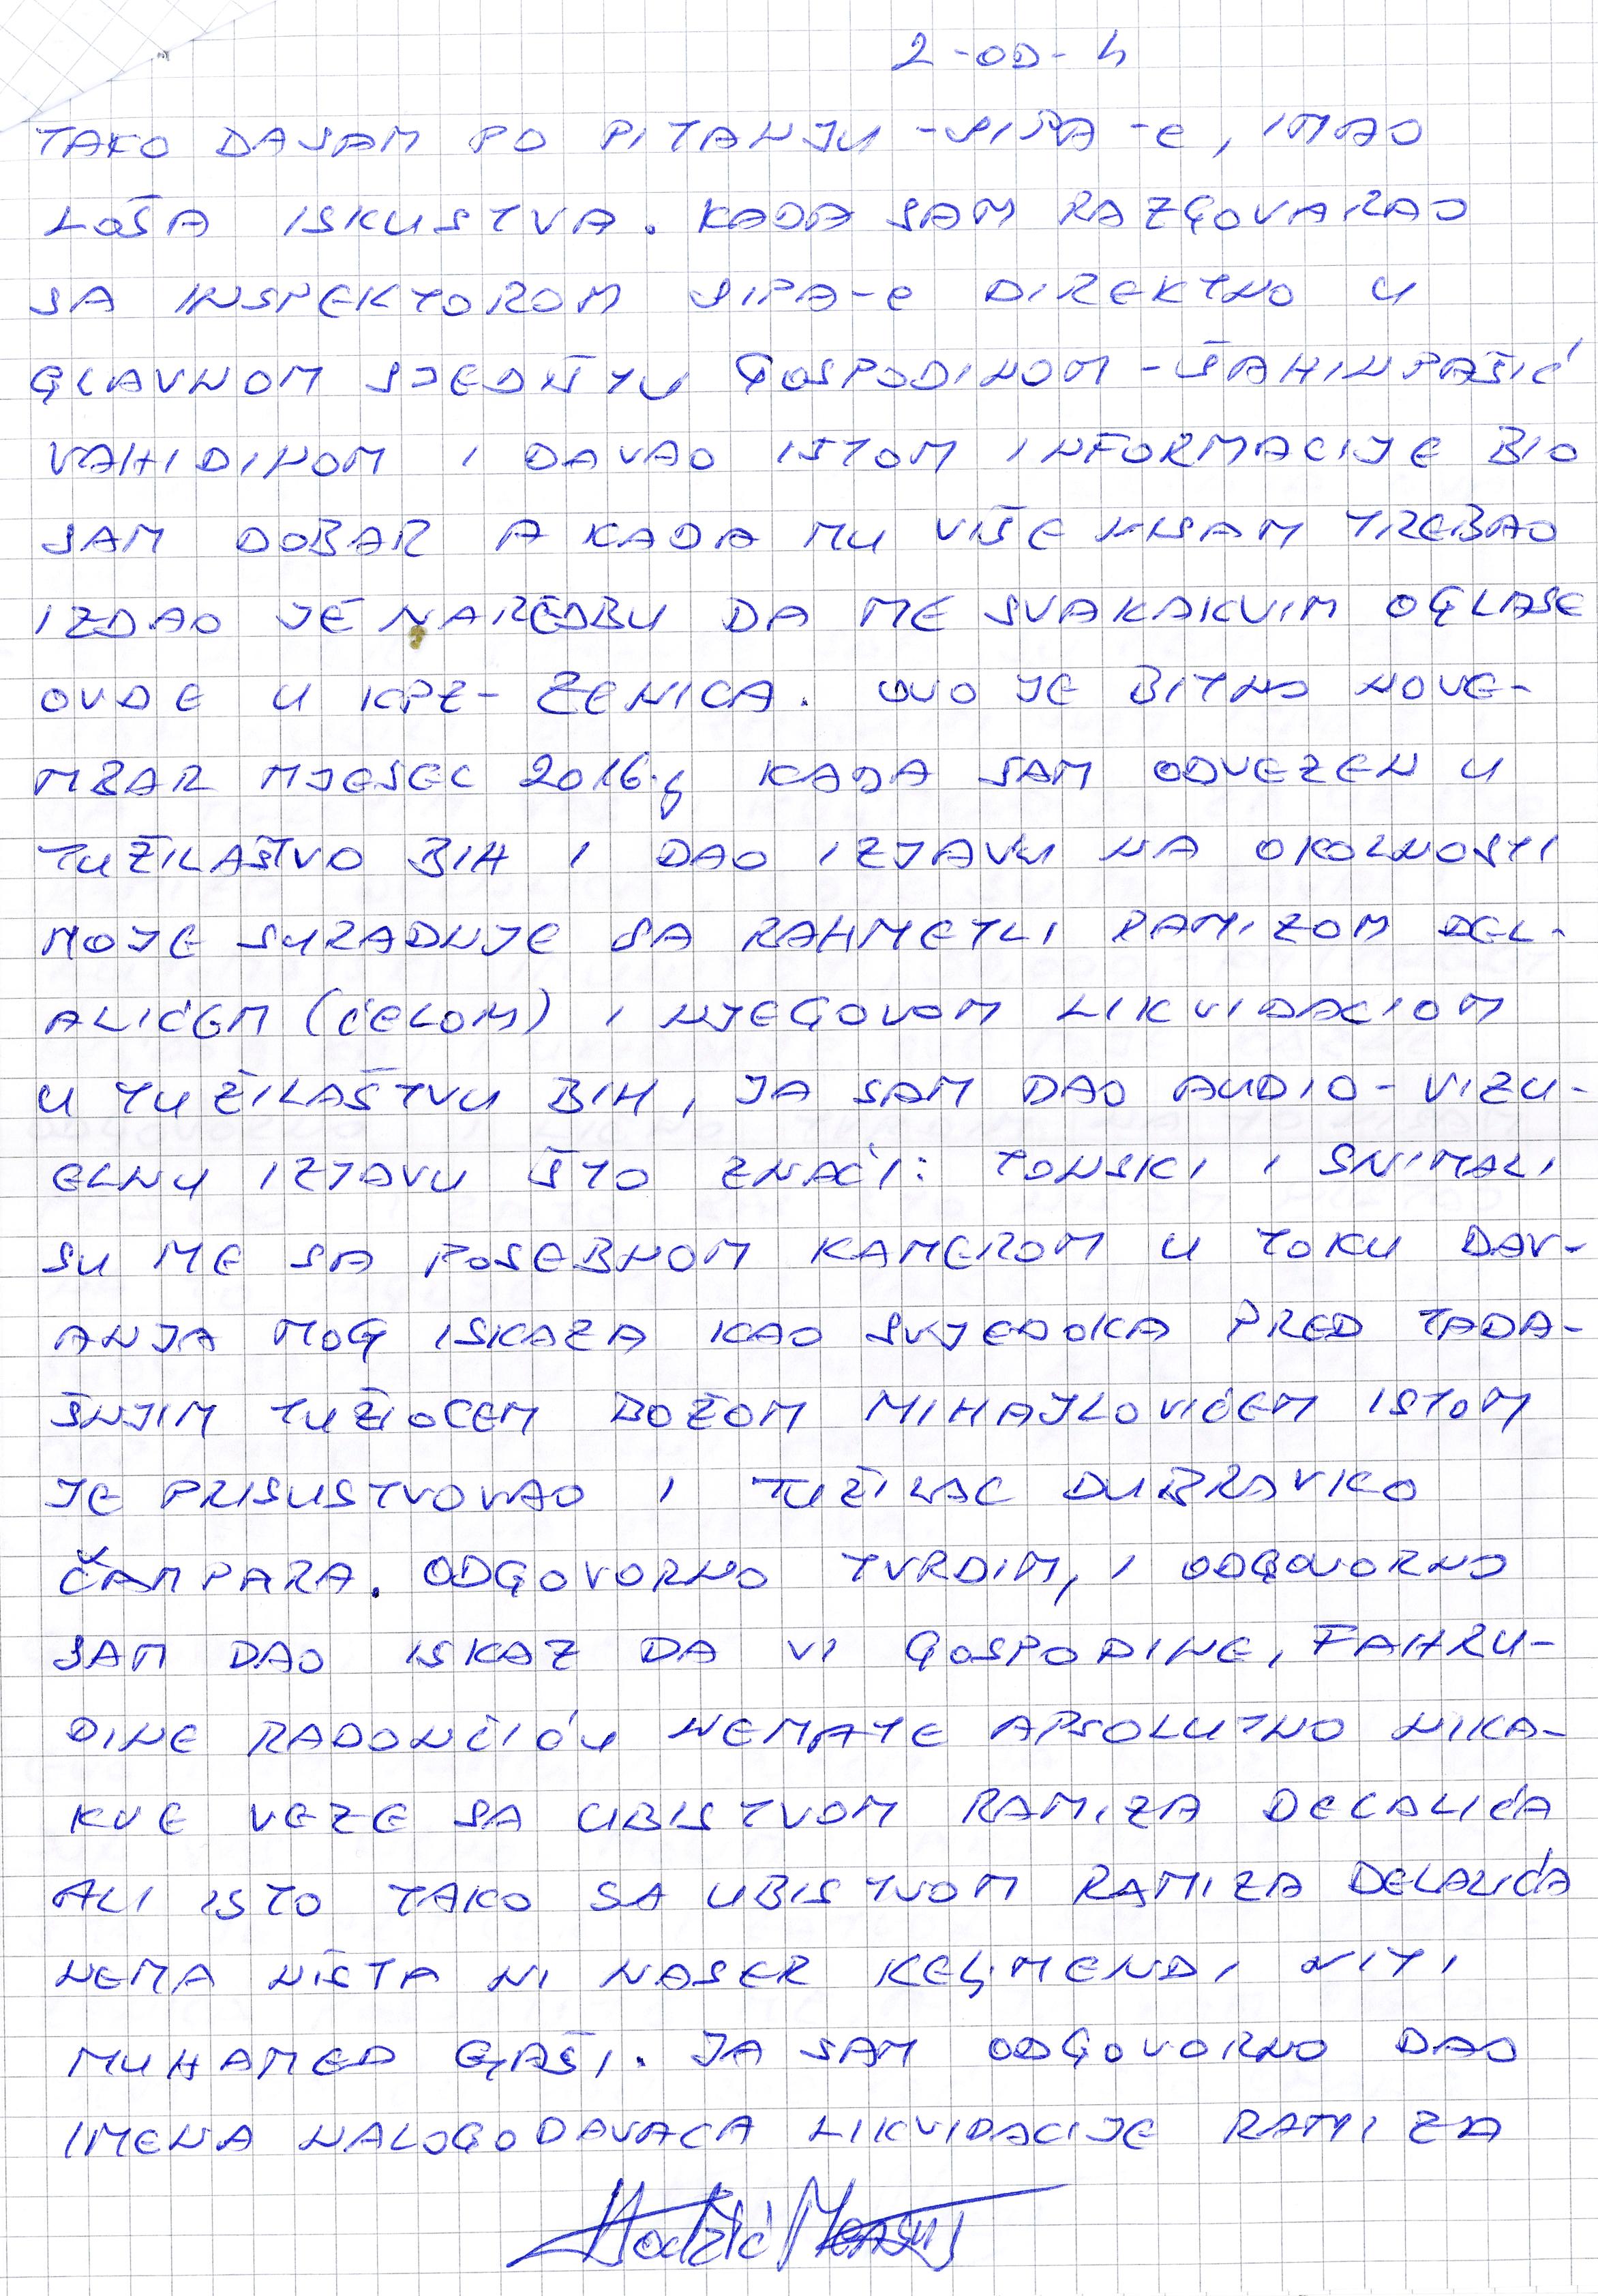 2-OD-4
TAKO DASAM PO PITANJU -SIPA-e, IMAO
LOŠA ISKUSTVA. KADA SAM RAZGOVARAO
SA INSPEKTOROM SIPA-e DIREKTNO U
GLAVNOM SJEDIŠTU GOSPODINOM - ŠAHINPAŠIĆ
VAHIDINOM I DAVAO ISTOM INFORMACIJE BIO
SAM DOBAR A KADA MU VIŠE NISAM TREBAO
IZDAO JE NAREDBU DA ME SVAKAKVIM OGLASE
OVDE U KPZ- ZENICA. OVO JE BITNO NOVE-
MBAR MJESEC 2016.g KADA SAM ODVEZEN U
TUŽILAŠTVO BIH I DAO IZJAVU NA OKOLNOSTI
MOJE SURADNJE SA RAHMETLI RAMIZOM DEL-
ALIĆEM (ĆELOM) I NJEGOVOM LIKVIDACIOM
U TUŽILAŠTVU BIH, JA SAM DAO AUDIO-VIZU-
ELNU IZJAVU ŠTO ZNAČI: TONSKI I SNIMALI
SU ME SA POSEBNOM KAMEROM U TOKU DAV-
ANJA MOG ISKAZA KAO SVJEDOKA PRED TADA-
ŠNJIM TUŽIOCEM BOŽOM MIHAJLOVIĆEM ISTOM
JE PRISUSTVOVAO I TUŽILAC DUBRAVKO
ČAMPARA. ODGOVORNO TVRDIM, I ODGOVORNO
SAM DAO ISKAZ DA VI GOSPODINE, FAHRU-
DINE RADONČIĆU NEMATE APSOLUTNO NIKA-
KVE VEZE SA UBISTVOM RAMIZA DELALIĆA
ALI ISTO TAKO SA UBISTVOM RAMIZA DELALIĆA
NEMA NIŠTA NI NASER KELJMENDI NITI
MUHAMED GAŠI. JA SAM ODGOVORNO DAO
IMENA NALOGODAVACA LIKVIDACIJE RAMIZA
Hodžić